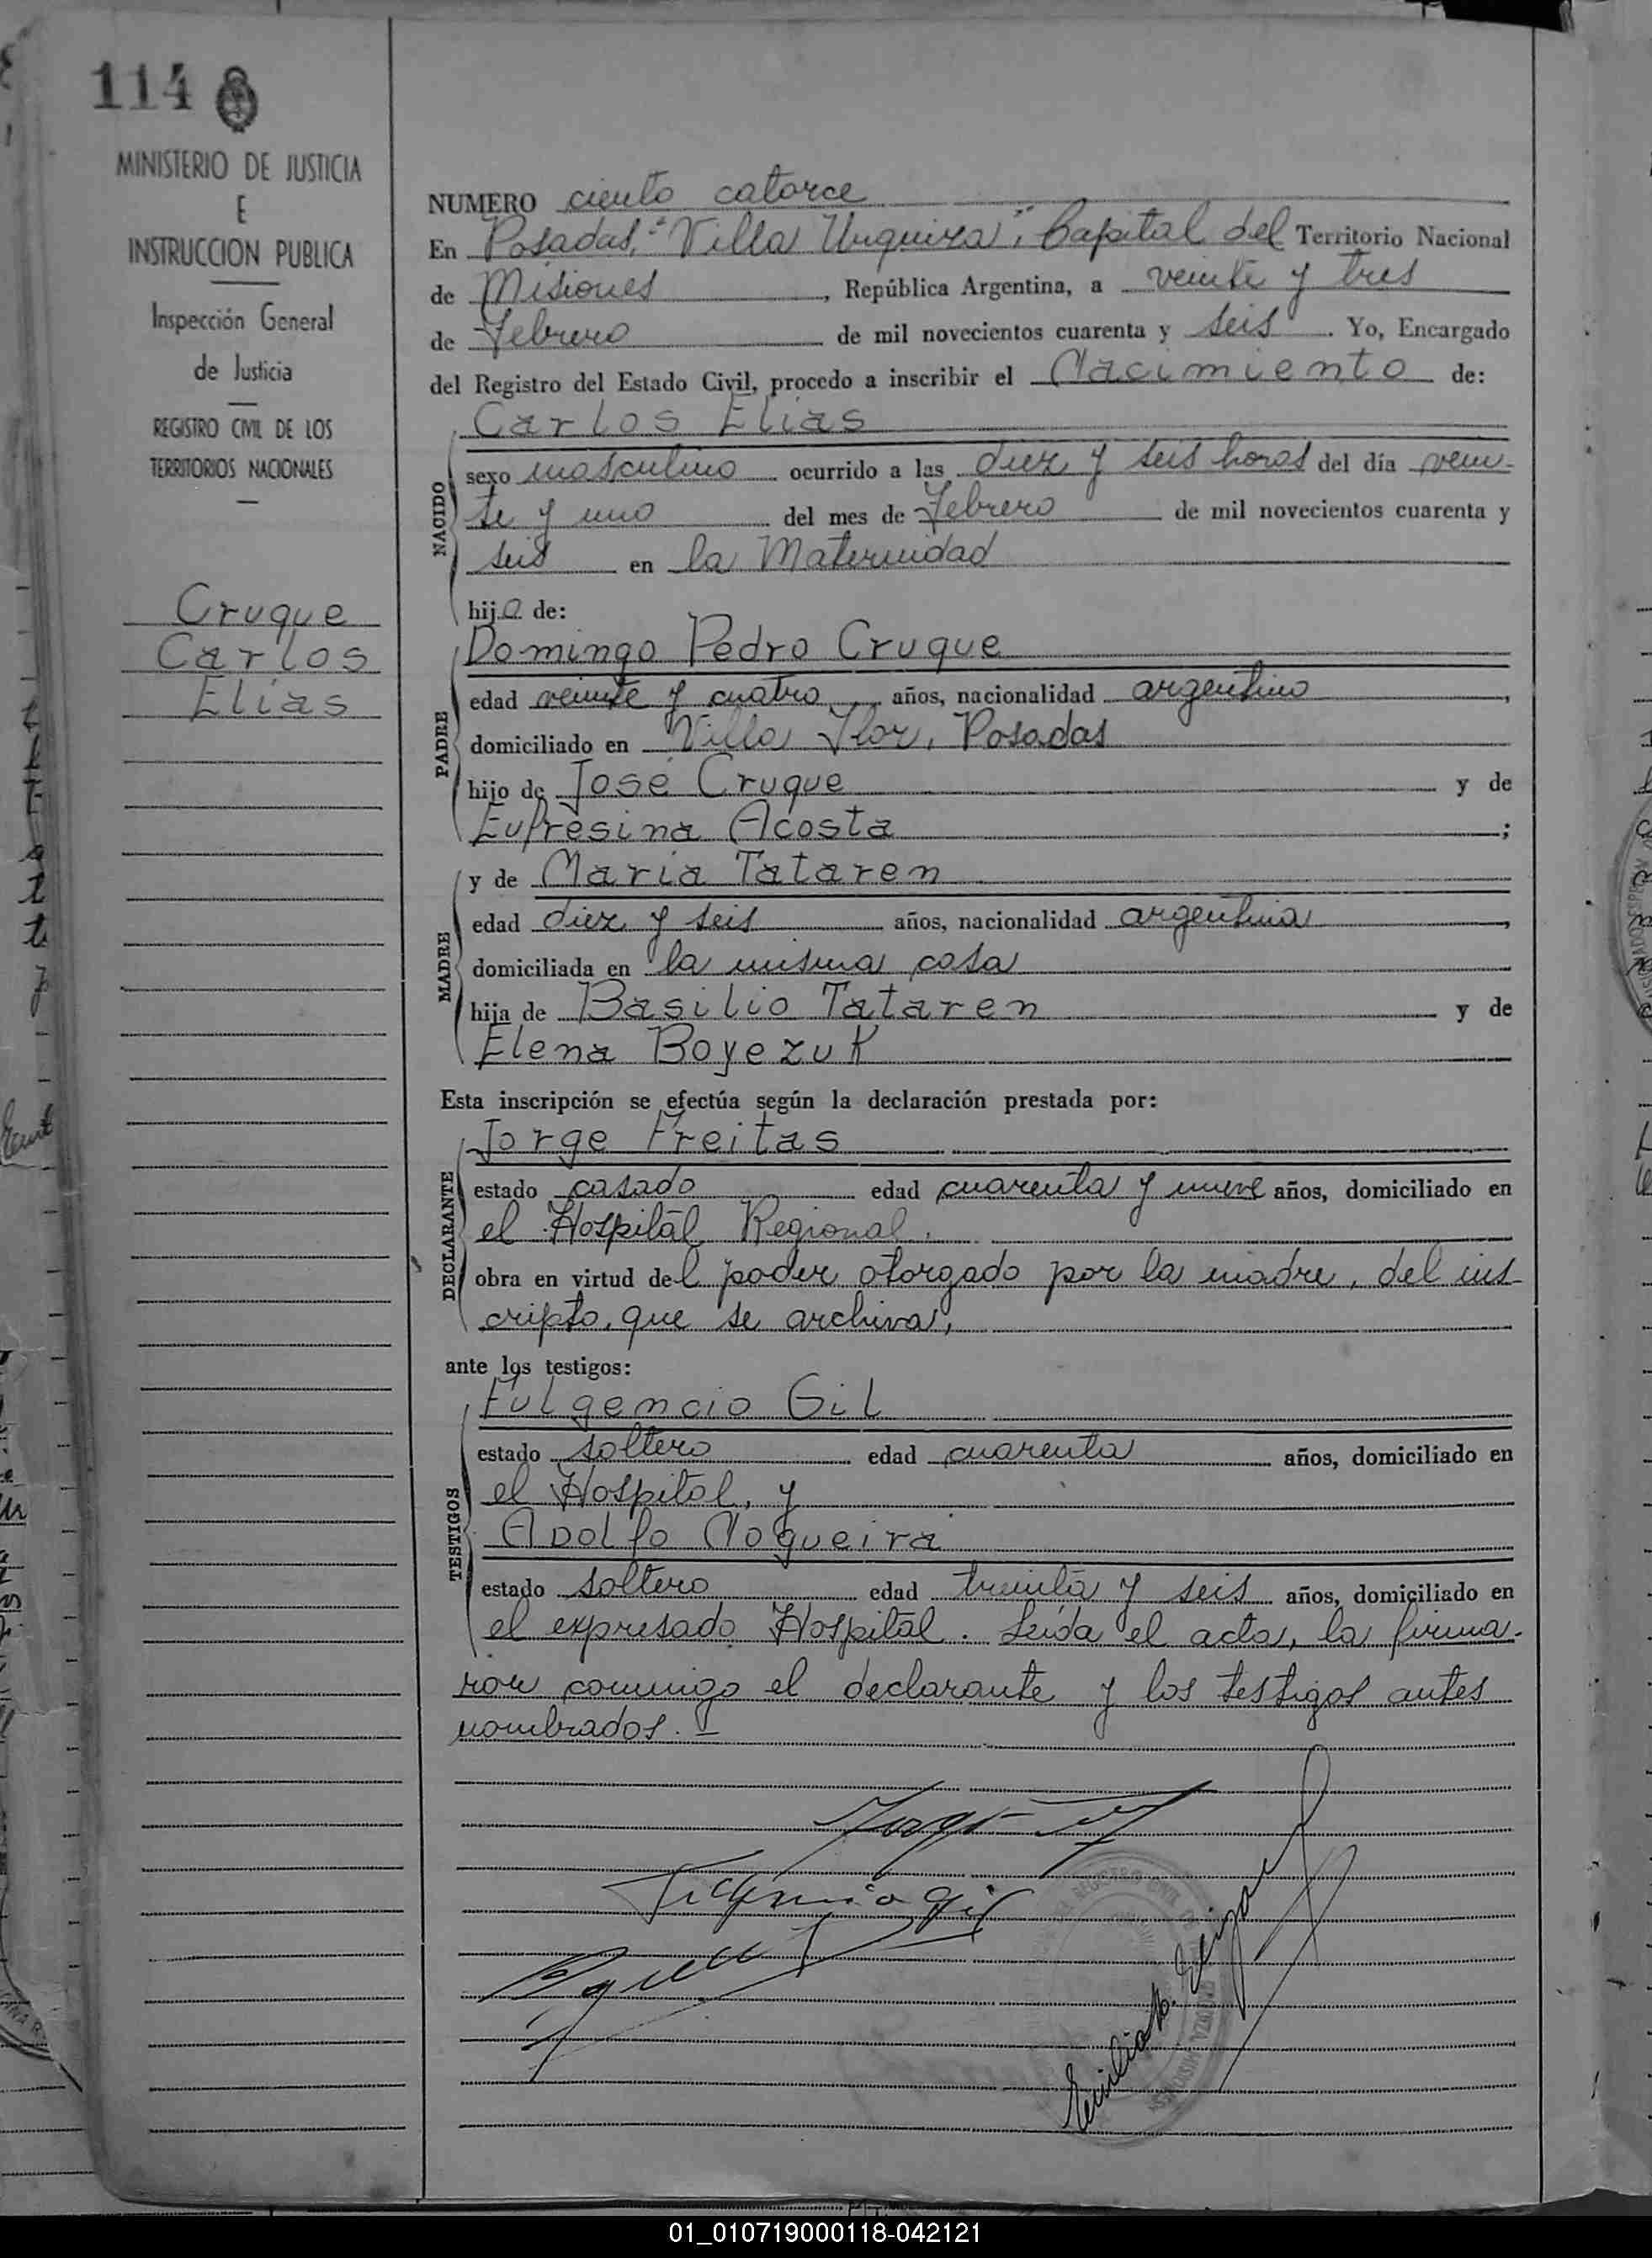 114
MINISTERIO DE JUSTICIA
E
INSTRUCCION PUBLICA
Inspección General
de Justicia
REGISTRO CIVIL DE LOS
TERRITORIOS NACIONALES
Cruque
Carlos
Elias
NUMERO ciento catorce
En Posadas, "Villa Urquiza", Capital del Territorio Nacional
de Misiones, República Argentina, a veinte y tres
de Febrero de mil novecientos cuarenta y seis. Yo, Encargado
del Registro del Estado Civil, procedo a inscribir el Nacimiento de:
Carlos Elias
NACIDO
sexo masculino ocurrido a las diez y seis horas del día vein-
te y uno del mes de Febrero de mil novecientos cuarenta y
seis en la Maternidad
hijo de:
Domingo Pedro Cruque
PADRE
edad veinte y cuatro años, nacionalidad argentino,
domiciliado en Villa Flor, Posadas
hijo de José Cruque y de
Eufresina Acosta;
y de Maria Tataren
MADRE
edad diez y seis años, nacionalidad argentina,
domiciliada en la misma casa
hija de Basilio Tataren y de
Elena Boyezuk
Esta inscripción se efectúa según la declaración prestada por:
Jorge Freitas
DECLARANTE
estado casado edad cuarenta y nueve años, domiciliado en
el Hospital Regional,
obra en virtud del poder otorgado por la madre, del ins-
cripto, que se archiva,
ante los testigos:
Fulgencio Gil
TESTIGOS
estado soltero edad cuarenta años, domiciliado en
el Hospital, y
Adolfo Nogueira
estado soltero edad treinta y seis años, domiciliado en
el expresado Hospital. Leída el acta, la firma-
ron conmigo el declarante y los testigos antes
nombrados. -
Fulgencio Gil
01_010719000118-042121